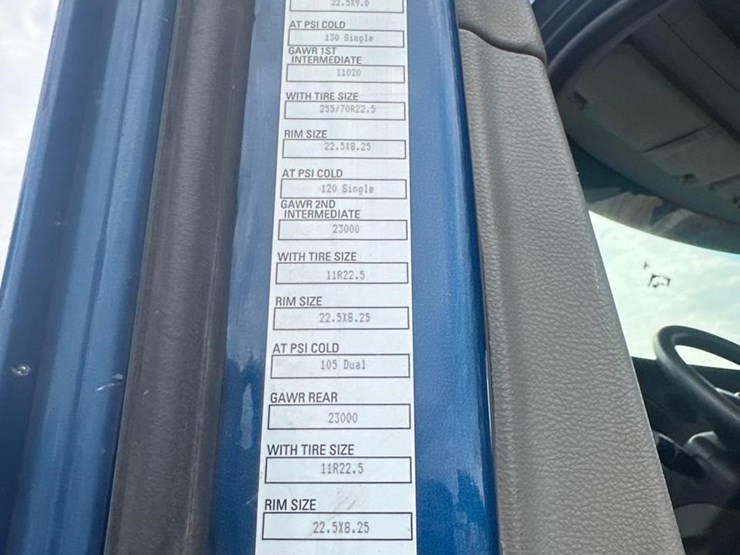 22.5X9.0
AT PSI COLD
130 Single
GAWR 1ST
INTERMEDIATE
11020
WITH TIRE SIZE
255/70R22.5
RIM SIZE
22.5X8.25
AT PSI COLD
120 Single
GAWR 2ND
INTERMEDIATE
23000
WITH TIRE SIZE
11R22.5
RIM SIZE
22.5X8.25
AT PSI COLD
105 Dual
GAWR REAR
23000
WITH TIRE SIZE
11R22.5
RIM SIZE
22.5X8.25